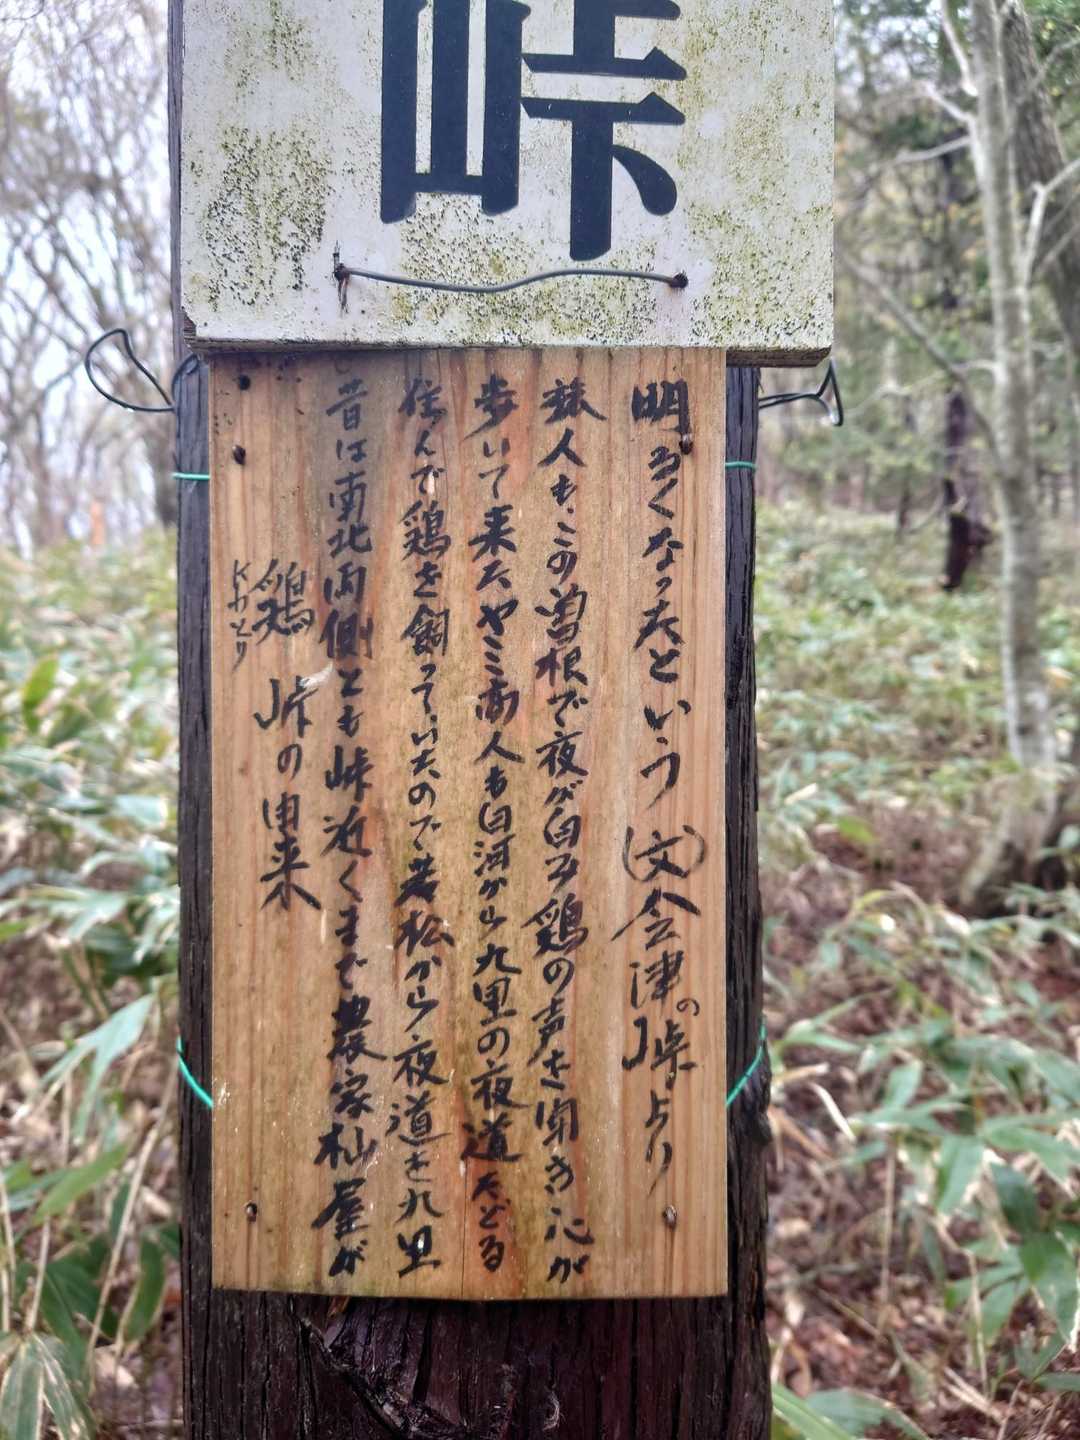 峠
鶏峠の由来
にわとり
昔は南北両側とも峠近くまで農家杣屋が
住んで鶏を飼っていたので若松から夜道を九里
歩いて来たヤミ商人も白河から九里の夜道たどる
旅人も、この曽根で夜が白み鶏の声を聞き心が
明るくなったという (文)会津の峠より